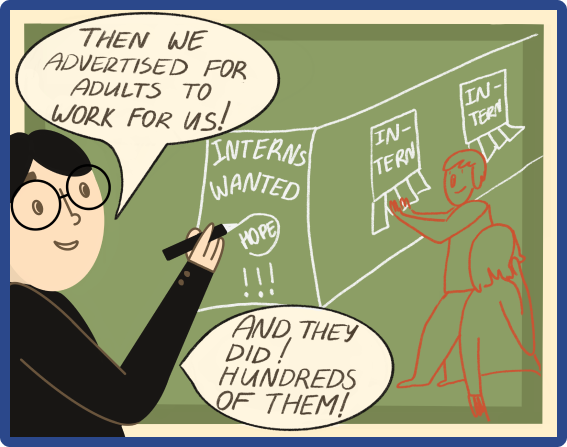 THEN WE
ADVERTISED FOR
ADULTS TO
WORK FOR US!
INTERNS
WANTED
HOPE
!!!
IN-
TERN
IN-
TERN
AND THEY
DID!
HUNDREDS
OF THEM!